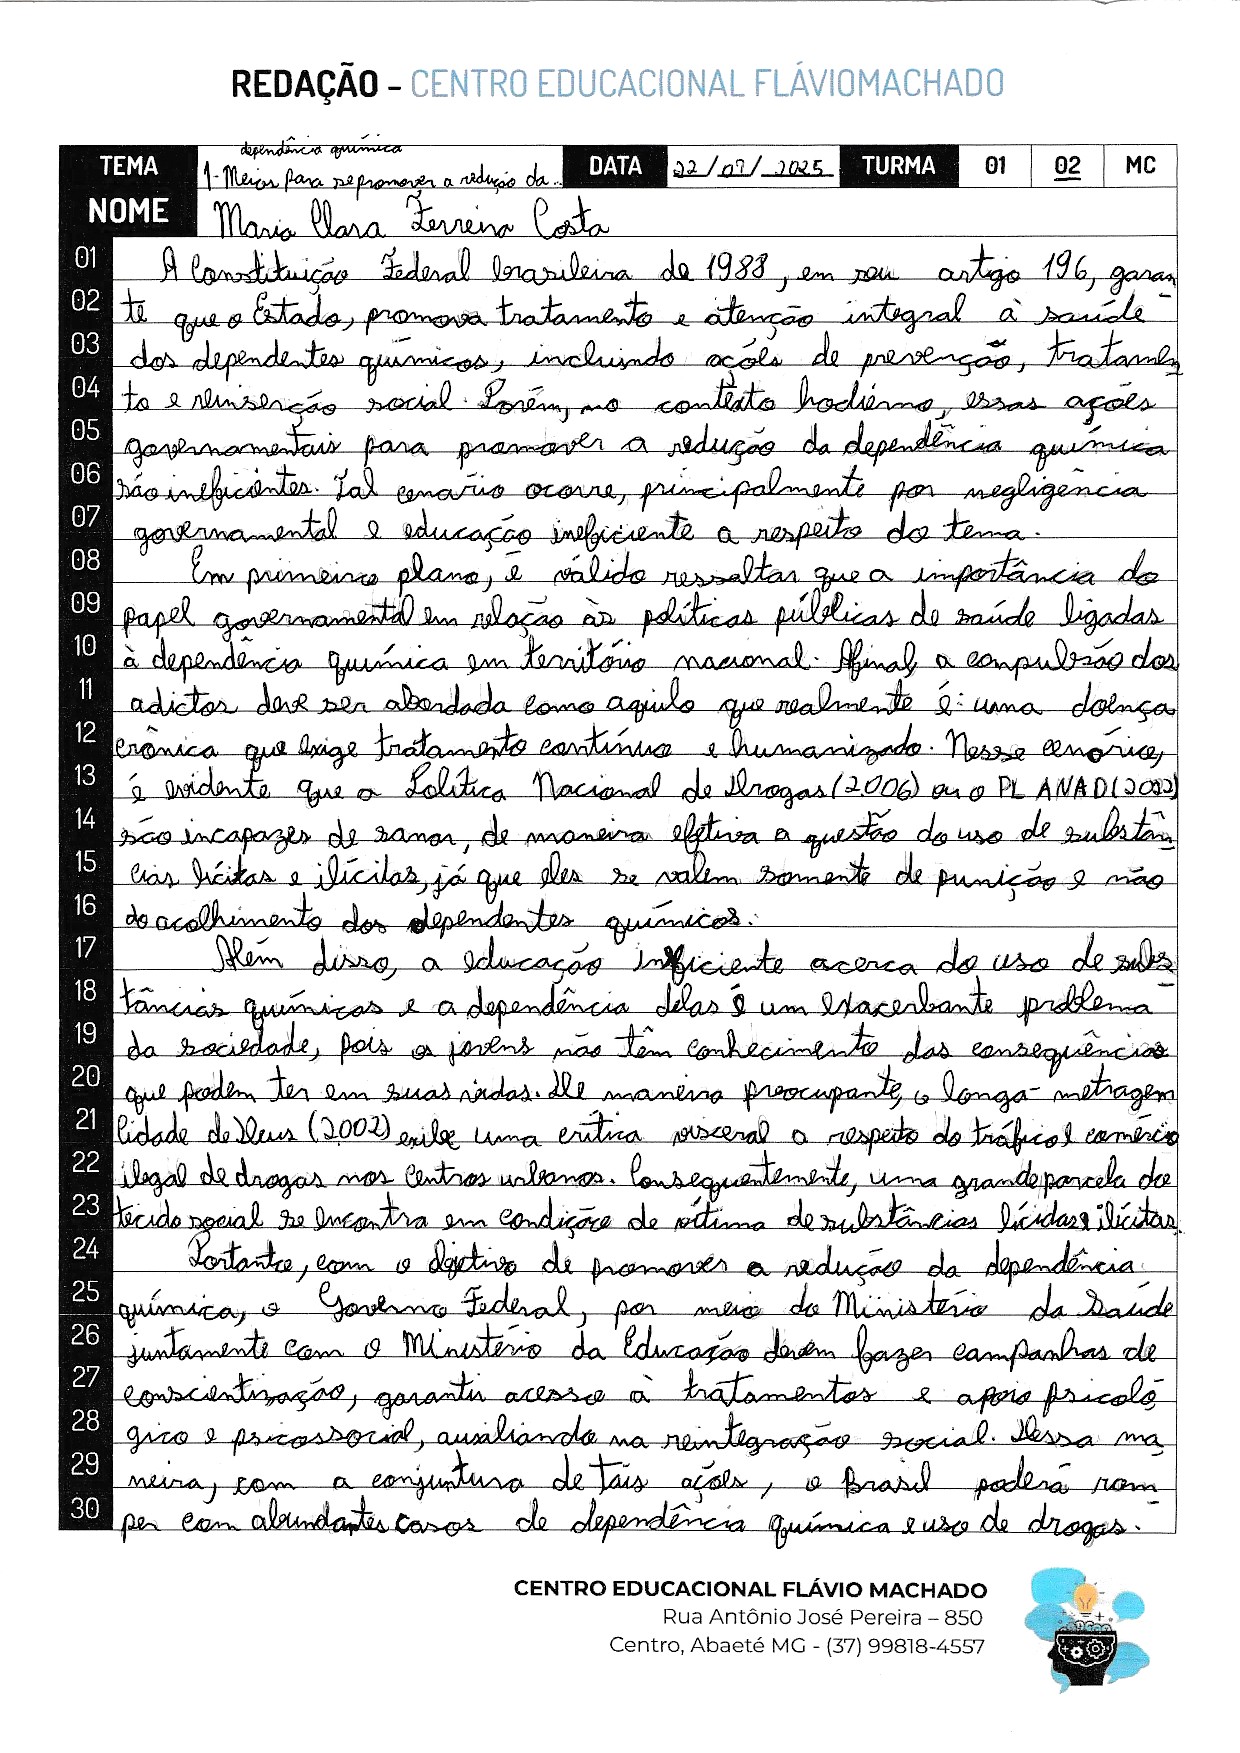 REDAÇÃO - CENTRO EDUCACIONAL FLÁVIOMACHADO
dependência química
TEMA 1- Meios para se promover a redução da... DATA 22/07/2025 TURMA 01 02 MC
NOME Maria Clara Ferreira Costa
01 A Constituição Federal brasileira de 1988, em seu artigo 196, garan
02 te que o Estado, promova tratamento e atenção integral à saúde
03 dos dependentes químicos, incluindo açóes de prevenção, tratamen
04 to e reinserção social. Porém, no contexto hodierno, essas ações
05 governamentais para promover a redução da dependência química
06 são ineficientes. Tal cenario ocorre, principalmente por negligência
07 governamental e educação ineficiente a respeito do tema.
08 Em primeiro plano, é válido ressaltar que a importância do
09 papel governamental em relação às políticas públicas de saúde ligadas
10 à dependência química em território nacional. Afinal, a compulsão dos
11 adictos deve ser abordada como aquilo que realmente é: uma doença
12 crônica que exige tratamento contínuo e humanizado. Nesse cenário,
13 é evidente que a Política Nacional de Drogas (2006) ou o PLANAD (2022)
14 são incapazes de sanar, de maneira efetiva a questão do uso de substân
15 cias lícitas e ilícitas, já que eles se valem somente de punição e não
16 do acolhimento dos dependentes químicos.
17 Além disso, a educação ineficiente acerca do uso de subs
18 tâncias químicas e a dependência delas é um exacerbante problema
19 da sociedade, pois os jovens não têm conhecimento das consequências
20 que podem ter em suas vidas. De maneira preocupante, o longa-metragem
21 Cidade de Deus (2002) exibe uma crítica visceral a respeito do tráfico e comércio
22 ilegal de drogas nos centros urbanos. Consequentemente, uma grande parcela do
23 tecido social se encontra em condição de vítima de substâncias lícidas e ilícitas.
24 Portanto, com o objetivo de promover a redução da dependência
25 química, o Governo Federal, por meio do Ministério da Saúde
26 juntamente com o Ministério da Educação devem fazer campanhas de
27 conscientização, garantir acesso à tratamentos e apoio psicoló
28 gico e psicossocial, auxiliando na reintegração social. Dessa ma
29 neira, com a conjuntura de tais ações, o Brasil poderá rom
30 per com abundantes casos de dependência química e uso de drogas.
CENTRO EDUCACIONAL FLÁVIO MACHADO
Rua Antônio José Pereira – 850
Centro, Abaeté MG - (37) 99818-4557